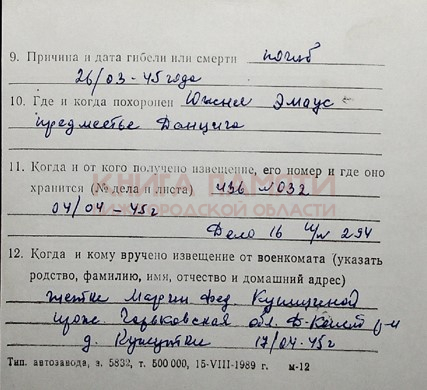 9. Причина и дата гибели или смерти погиб
26/03-45 года
10. Где и когда похоронен Южнее Эмаус
предместье Данцига
11. Когда и от кого получено извещение, его номер и где оно
хранится (№ дела и листа) 496 №032
КНИГА ПАМЯТИ
НИЖЕГОРОДСКОЙ ОБЛАСТИ
04/04-45г
Дело 16 л/№ 294
12. Когда и кому вручено извещение от военкомата (указать
родство, фамилию, имя, отчество и домашний адрес)
Марии Фед.
прож. Горьковская обл.
д. 17/04-45г
Тип. автозавода, з. 5832, т. 500 000, 15-VIII-1989 г. м-12